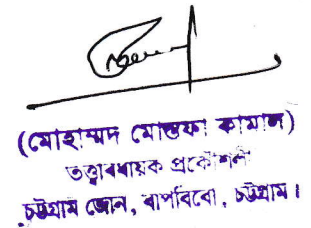 (মোহাম্মদ মোস্তফা কামাল)
তত্ত্বাবধায়ক প্রকৌশলী
চট্টগ্রাম জোন, বাপবিবো, চট্টগ্রাম।